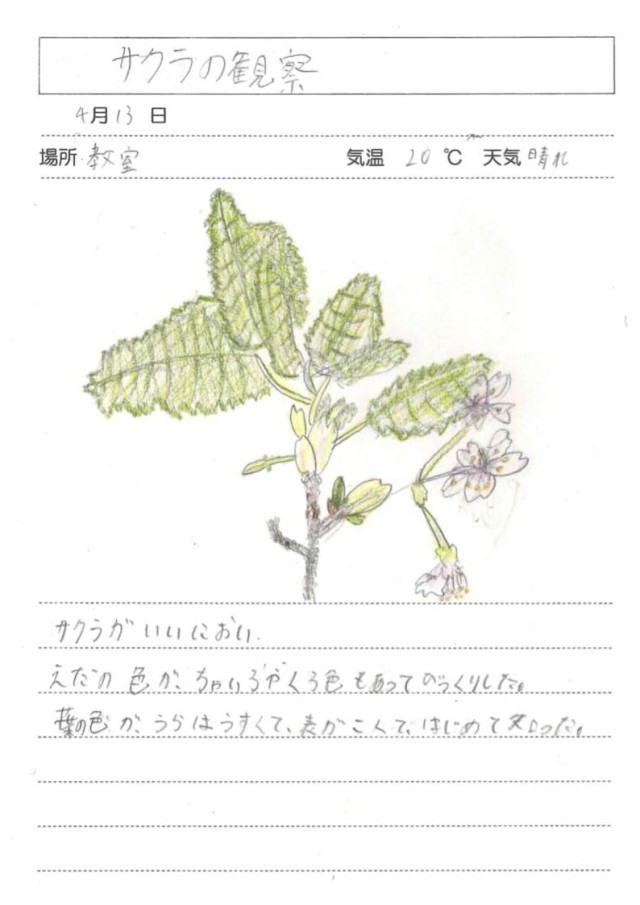 サクラの観察
4月13日
場所 教室 気温 20 ℃ 天気 晴れ
サクラがいいにおい.
えだの色が、ちゃいろやくろ色もあってびっくりした。
葉の色が、うらはうすくて、表がこくて、はじめて知った。